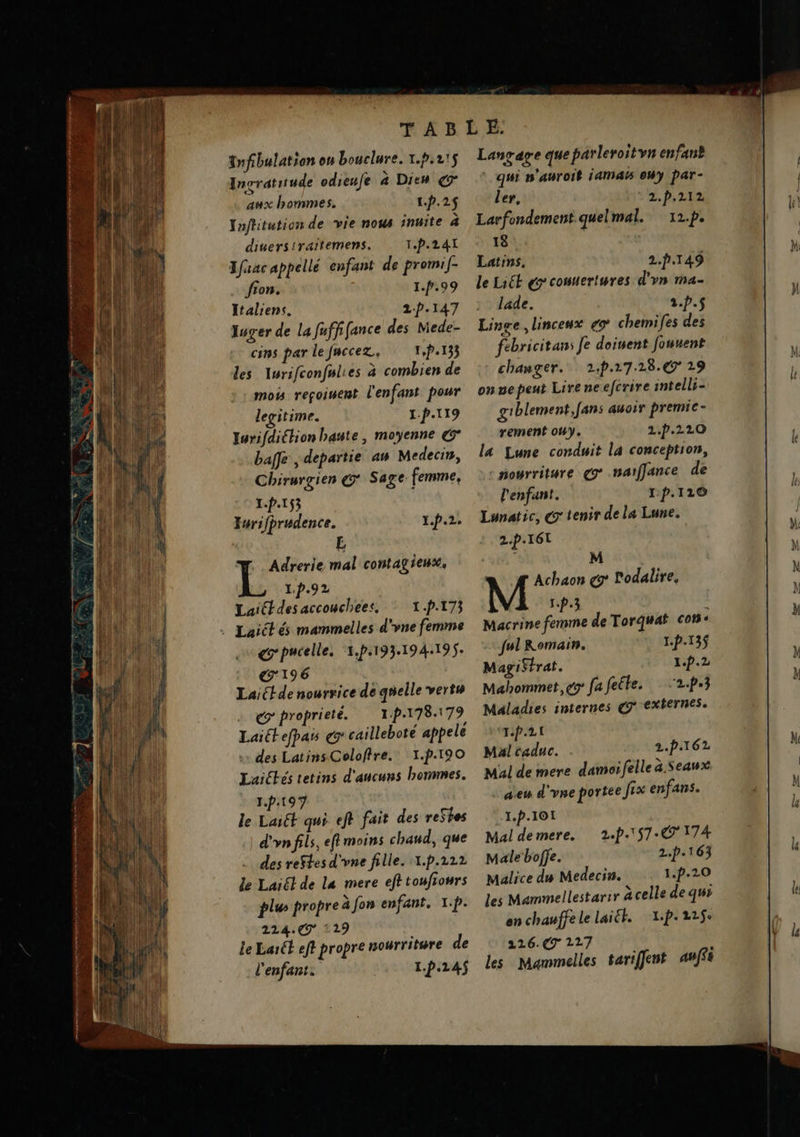 TABLE.
Infibulation ou bouclure. 1.p.215
Ingratitude odieuse à Dieu &
aux hommes. 1.p.25
Institution de vie nous inuite à
diuers traitemens. 1.p.241
Isaac appellé enfant de promis-
sion. 1.p.99
Italiens. 2.p.147
Iuger de la suffisance des Mede-
cins par le succez. 1.p.133
les Iurisconsultes à combien de
mois reçoiuent l'enfant pour
legitime. 1.p.119
Iurisdiction haute, moyenne &
basse, departie au Medecin,
Chirurgien & Sage femme,
1.p.153
Iurisprudence. 1.p.2.
L
LAdrerie mal contagieux,
1.p.92
Laict des accouchees. 1.p.173
Laict és mammelles d'vne femme
& pucelle. 1.p.193.194.195.
& 196
Laict de nourrice de quelle vertu
& proprieté. 1.p.178.179
Laict espais & cailleboté appelé
des Latins Colostre. 1.p.190
Laict és tetins d'aucuns hommes.
1.p.197
le Laict qui est fait des restes
d'vn fils, est moins chaud, que
des restes d'vne fille. 1.p.222
le Laict de la mere est tousiours
plus propre à son enfant. 1.p.
224.& 229
le Laict est propre nourriture de
l'enfant. 1.p.245
Langage que parleroit vn enfant
qui n'auroit iamais ouy par-
ler, 2.p.212
Larfondement quel mal. 12.p.
18
Latins. 2.p.149
le Lict & couuertures d'vn ma-
lade. 2.p.5
Linge, linceux & chemises des
febricitans se doiuent souuent
changer. 2.p.27.28.& 29
on ne peut Lire ne escrire intelli-
giblement, sans auoir premie-
rement ouy. 2.p.220
la Lune conduit la conception,
nourriture & naissance de
l'enfant. 1.p.120
Lunatic, & tenir de la Lune.
2.p.161
M
MAchaon & Podalire,
1.p.3
Macrine femme de Torquat con-
sul Romain. 1.p.135
Magistrat. 1.p.2
Mahommet, & sa secte. 2.p.3
Maladies internes & externes.
1.p.21
Mal caduc. 2.p.162
Mal de mere damoiselle à Seaux
a eu d'vne portee six enfans.
1.p.101
Mal de mere. 2.p.157.& 174
Male bosse. 2.p.163
Malice du Medecin. 1.p.20
les Mammelles tarir à celle de qui
on chauffe le laict. 1.p.225.
226.& 227
les Mammelles tarissent aussi